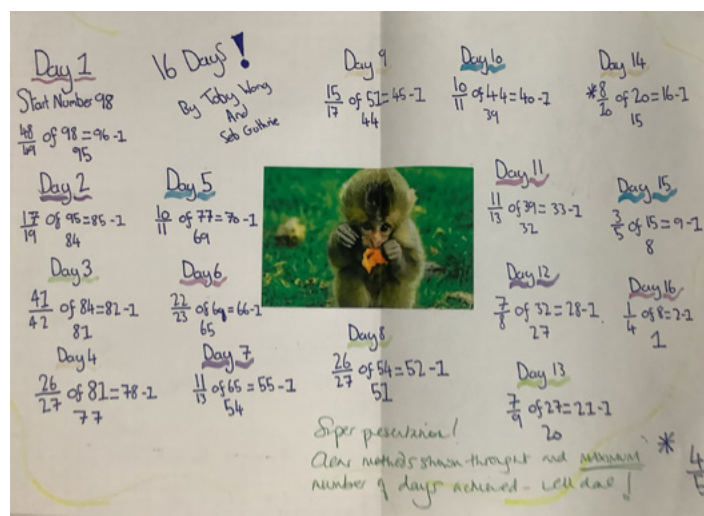 Day 1
Start Number 98
48/49 of 98=96-1
95
Day 2
17/19 of 95=85-1
84
Day 3
41/42 of 84=82-1
81
Day 4
26/27 of 81=78-1
77
16 Days!
By Toby Wong
And
Seb Guthrie
Day 5
10/11 of 77=70-1
69
Day 6
22/23 of 69=66-1
65
Day 7
11/13 of 65=55-1
54
Day 8
26/27 of 54=52-1
51
Day 9
15/17 of 51=45-1
44
Day 10
10/11 of 44=40-1
39
Day 11
11/13 of 39=33-1
32
Day 12
7/8 of 32=28-1
27
Day 13
7/9 of 27=21-1
20
Day 14
*8/20 of 20=16-1
15
Day 15
3/5 of 15=9-1
8
Day 16
1/4 of 8=2-1
1
Super presentation!
Clear methods shown throughout and maximum
number of days achieved - well done!
* 4/5